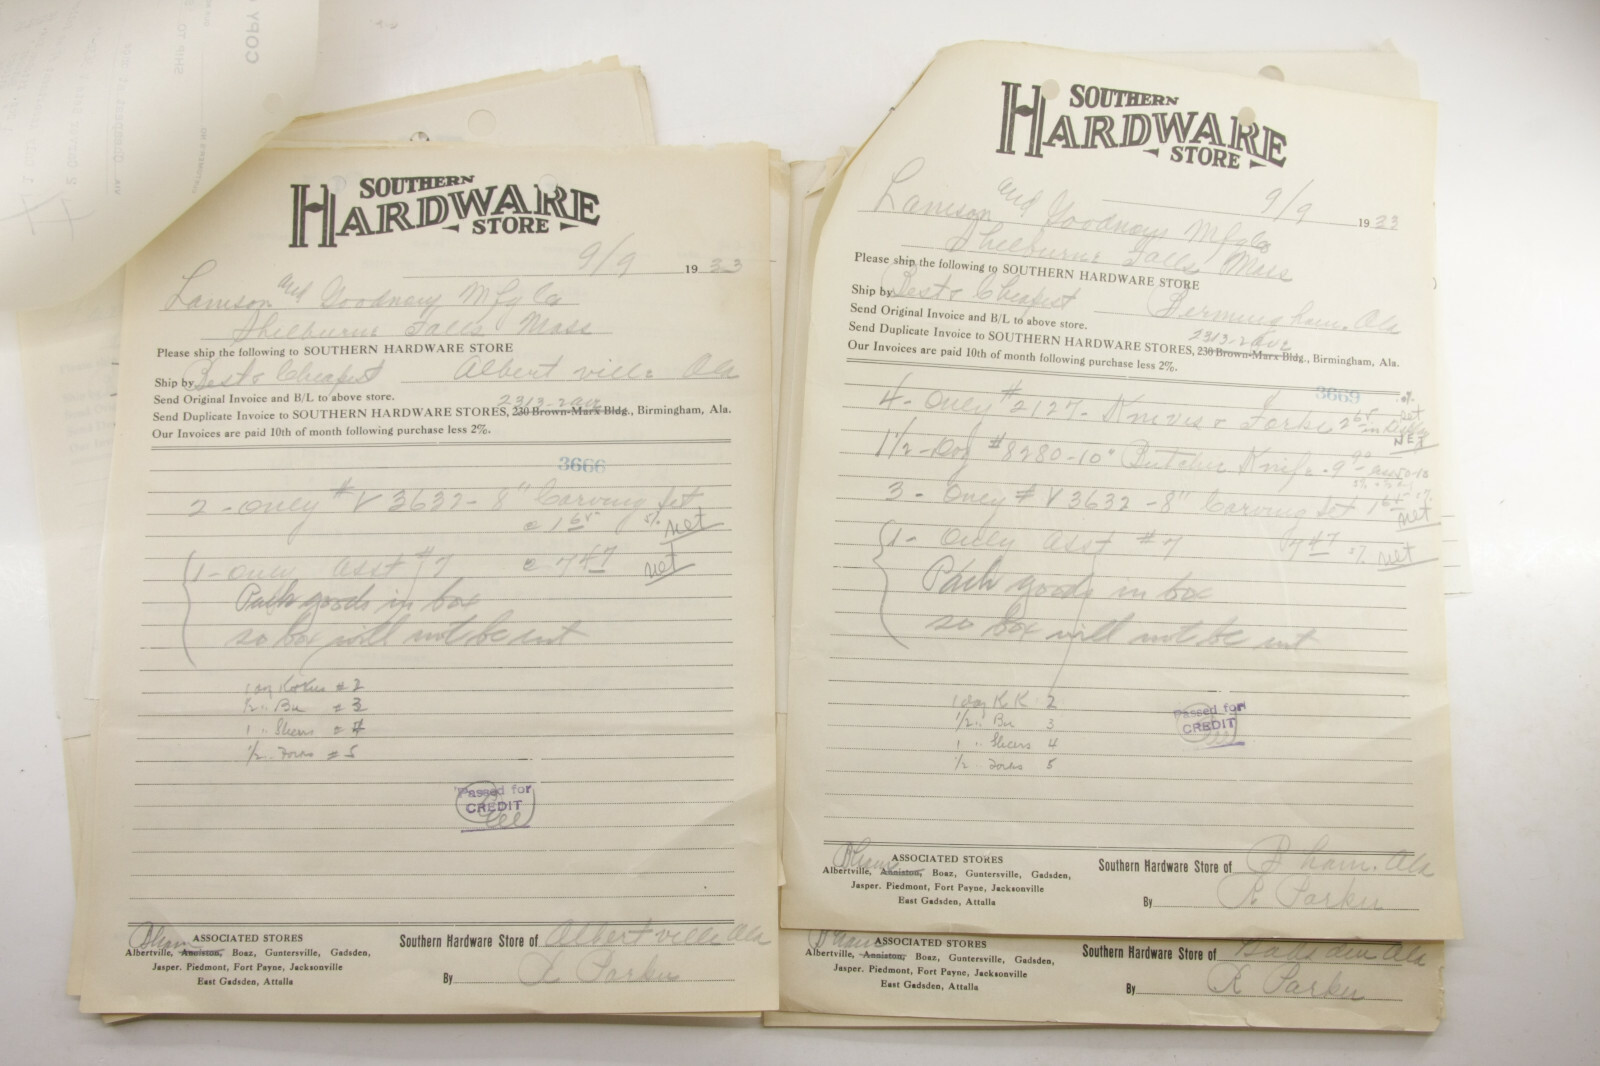 SOUTHERN
HARDWARE
STORE
9/9 1933
Lamson and Goodnow Mfg Co
Shelburne Falls Mass
Please ship the following to SOUTHERN HARDWARE STORE
Ship by Best & Cheapest Albertville Ala
Send Original Invoice and B/L to above store.
2313-2 ave
Send Duplicate Invoice to SOUTHERN HARDWARE STORES, 230 Brown-Marx Bldg., Birmingham, Ala.
Our Invoices are paid 10th of month following purchase less 2%.
3666
2 - only # V 3632 - 8" Carving Set
@ 1 65 5% net
1 - only asst #7 @ 7 47 net
Pack goods in box
so box will not be cut
#2
1/2 " = 3
1 " Shears = 4
1/2 " = 5
Passed for
CREDIT
Bham
ASSOCIATED STORES
Albertville, Anniston, Boaz, Guntersville, Gadsden,
Jasper. Piedmont, Fort Payne, Jacksonville
East Gadsden, Attalla
Southern Hardware Store of Albertville Ala
By R Parker
SOUTHERN
HARDWARE
STORE
9/9 1933
Lamson and Goodnow Mfg Co
Shelburne Falls Mass
Please ship the following to SOUTHERN HARDWARE STORE
Ship by Best & Cheapest Birmingham. Ala
Send Original Invoice and B/L to above store.
2313-2 ave
Send Duplicate Invoice to SOUTHERN HARDWARE STORES, 230 Brown-Marx Bldg., Birmingham, Ala.
Our Invoices are paid 10th of month following purchase less 2%.
3669
4 - only #2127 - Knives & Forks 2 65 net
1 1/2 - Doz #8280-10" Butcher Knife - 9 90
3 - only # V 3632 - 8" Carving Set 1 65 net
1 - only asst #7 7 47 5% net
Pack goods in box
so box will not be cut
1 doz K K 2
1/2 " 3
1 " Shears 4
1/2 " 5
Passed for
CREDIT
Bham
ASSOCIATED STORES
Albertville, Anniston, Boaz, Guntersville, Gadsden,
Jasper. Piedmont, Fort Payne, Jacksonville
East Gadsden, Attalla
Southern Hardware Store of B ham. Ala
By R Parker
Bham
ASSOCIATED STORES
Albertville, Anniston, Boaz, Guntersville, Gadsden,
Jasper. Piedmont, Fort Payne, Jacksonville
East Gadsden, Attalla
Southern Hardware Store of Gadsden Ala
By R Parker